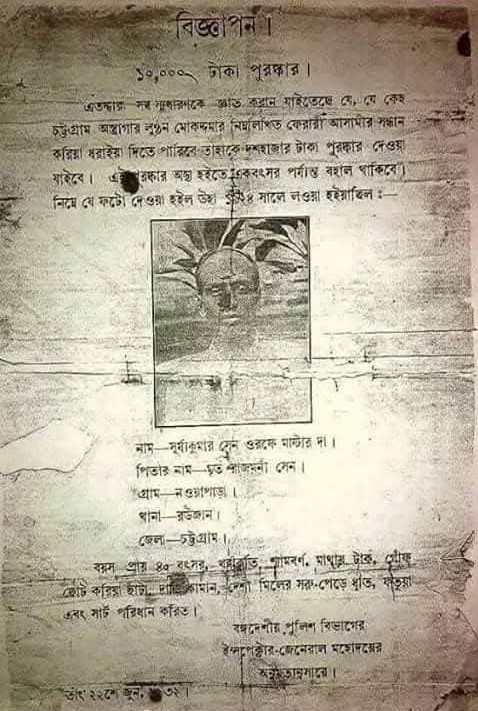 বিজ্ঞাপন।
১০,০০০৲ টাকা পুরষ্কার।
এতদ্দ্বারা সর্ব্ব সাধারণকে জ্ঞাত করান যাইতেছে যে, যে কেহ
চট্টগ্রাম অস্ত্রাগার লুণ্ঠন মোকদ্দমার নিম্নলিখিত ফেরারী আসামীর সন্ধান
করিয়া ধরাইয়া দিতে পারিবে তাহাকে দশহাজার টাকা পুরষ্কার দেওয়া
যাইবে। এই পুরষ্কার অদ্য হইতে একবৎসর পর্য্যন্ত বহাল থাকিবে।
নিম্নে যে ফটো দেওয়া হইল উহা ১৯২৪ সালে লওয়া হইয়াছিল :—
নাম—সূর্য্যকুমার সেন ওরফে মাষ্টার দা।
পিতার নাম—মৃত রাজমনী সেন।
গ্রাম—নওয়াপাড়া।
থানা—রাউজান।
জেলা—চট্টগ্রাম।
বয়স প্রায় ৪০ বৎসর, খর্ব্বাকৃতি, শ্যামবর্ণ, মাথায় টাক, গোঁফ
ছোট করিয়া ছাঁটা, দাড়ি কামান, দেশী মিলের সরু-পেড়ে ধুতি, ফতুয়া
এবং সার্ট পরিধান করিত।
বঙ্গদেশীয় পুলিশ বিভাগের
ইন্সপেক্টার-জেনেরাল মহোদয়ের
অনুমত্যনুসারে।
তাং ২২শে জুন, ১৯৩২।